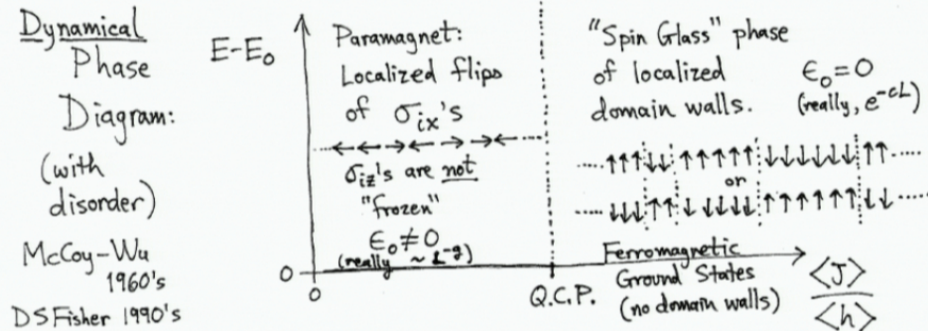 Dynamical
Phase
Diagram:
(with
disorder)
McCoy-Wu
1960's
DSFisher 1990's
E-E₀
0
0
Paramagnet:
Localized flips
of σ_ix's
..... ← ← → ← → → ← .....
σ_iz's are not
"frozen"
ϵ₀≠0
(really ~ L^-g)
Q.C.P.
"Spin Glass" phase
of localized
domain walls.
ϵ₀=0
(really, e^-cL)
..... ↑↑↑↓↓↑↑↑↑↑↓↓↓↓↓↓↑↑ .....
or
..... ↓↓↓↑↑↓↓↓↓↓↑↑↑↑↑↑↓↓ .....
Ferromagnetic
Ground States
(no domain walls)
<J>
<h>